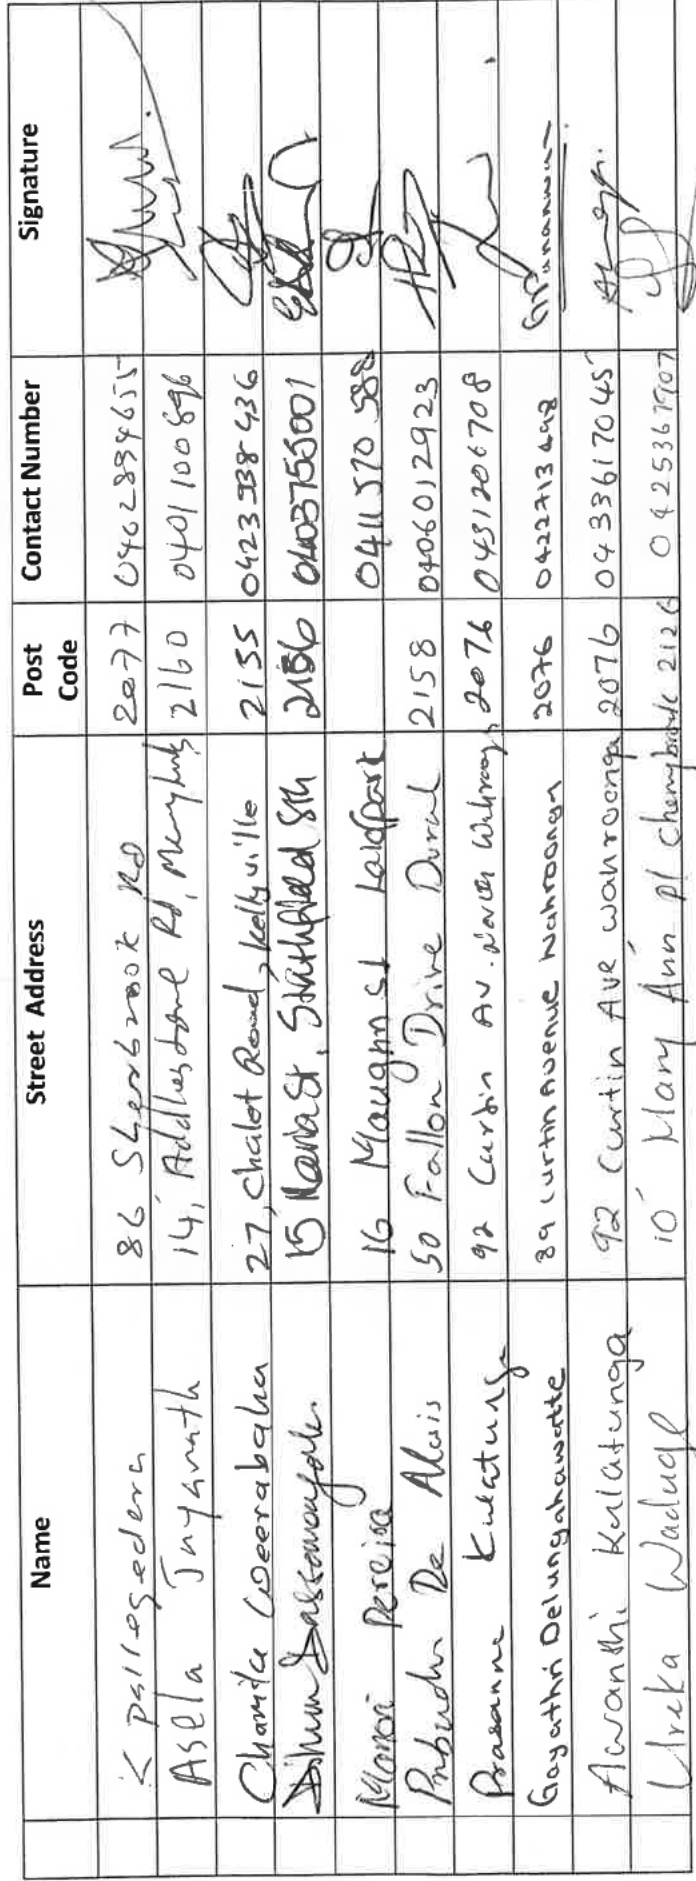 Name Street Address Post Code Contact Number Signature
86 Sherbrook Rd 2077
Asela Jayanath 14, Rd, 2160 0401100896
Chamila Weerabaha 27, Chalet Road, Kellyville 2155 0423 338 436
15 Maria St, Strathfield Sth 2136 0403755001
Manori Pereira 16 Maugin St Lalopark 0411 570 588
Prabudhi De Alwis 50 Fallon Drive Dural 2158 0406012923
Prasanna Kulatunga 92 Curtin Av. North Wahroonga, 2076 0431206708
Gayathri Delungahawatte 89 Curtin Avenue Wahroonga 2076 0422713492
Awanthi Kulatunga 92 Curtin Ave Wahroonga 2076 0433617045
Ureka Waduge 10 Mary Ann pl Cherrybrook 2126